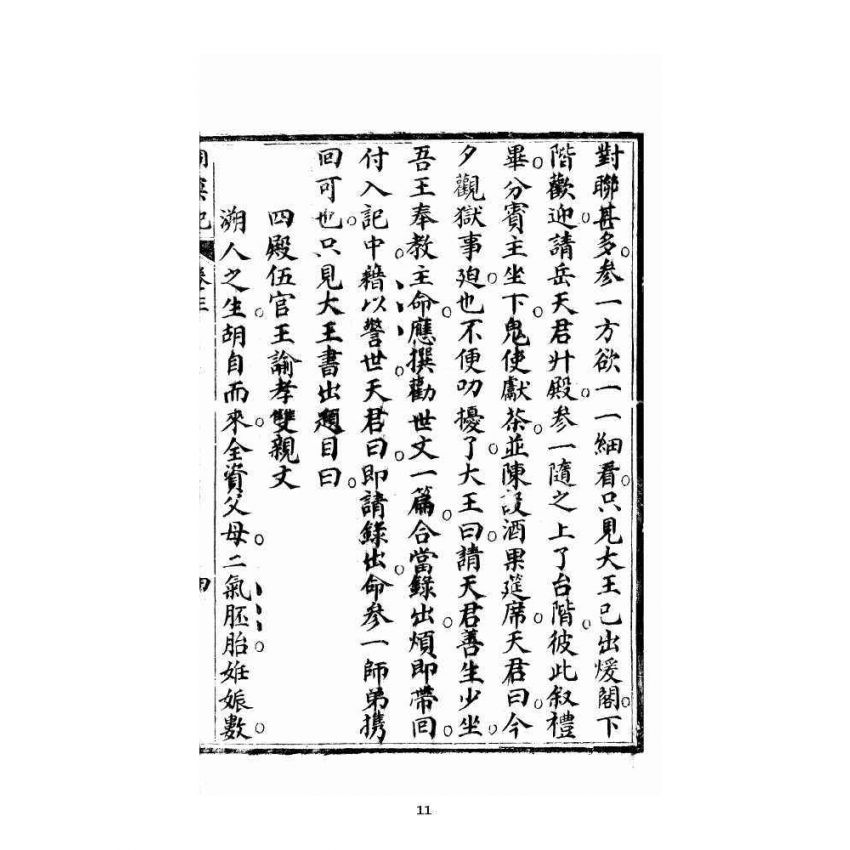 對聯甚多。参一方欲一一細看。只見大王已出煖閣。下
階歡迎。請岳天君升殿。参一隨之上了台階。彼此叙禮
畢。分賓主坐下。鬼使獻茶。並陳設酒果筵席。天君曰。今
夕觀獄事廹。也不便叨擾了。大王曰。請天君善生少坐。
吾王奉教主命。應撰勸世文一篇。合當錄出。煩即帶回。
付入記中。藉以警世。天君曰。即請錄出。命参一師弟携
回可也。只見大王書出題目曰。
四殿伍官王論孝雙親文
溯人之生。胡自而來。全資父母。二氣胚胎。姙娠數。
冥記 卷三 四
11